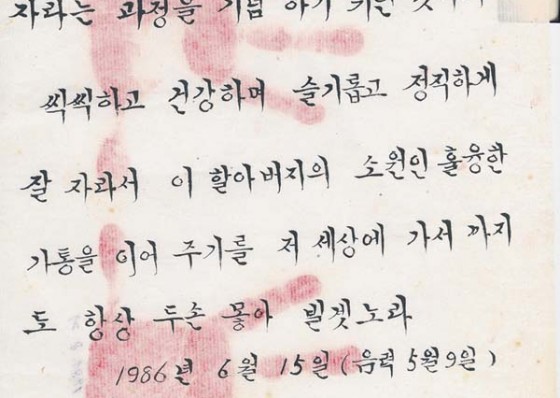 자라는 과정을 기념 하기 위한 것
씩씩하고 건강하며 슬기롭고 정직하게
잘 자라서 이 할아버지의 소원인 훌융한
가통을 이어 주기를 저 세상에 가서 까지
도 항상 두손 몿아 빌겟노라
1986년 6월 15일 (음력 5월 9일)